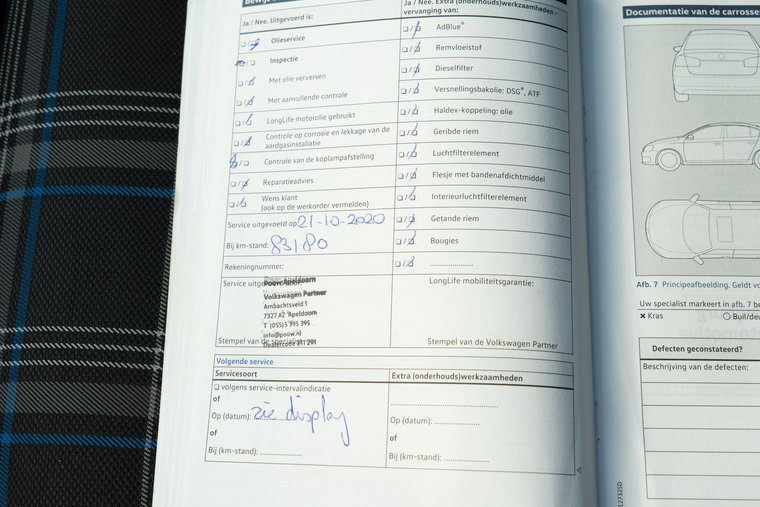 Ja / Nee. Uitgevoerd is:
☐ / ☑ Olieservice
☑ / ☐ Inspectie
☐ / ☑ Met olie verversen
☐ / ☑ Met aanvullende controle
☐ / ☑ LongLife motorolie gebruikt
☐ / ☑ Controle op corrosie en lekkage van de
aardgasinstallatie
☑ / ☐ Controle van de koplampafstelling
☐ / ☑ Reparatieadvies
☐ / ☑ Wens klant
(ook op de werkorder vermelden)
Service uitgevoerd op: 21-10-2020
Bij km-stand: 83180
Rekeningnummer:
Service
Pouw Apeldoorn
Volkswagen Partner
Ambachtsveld 1
7327 AZ Apeldoorn
T (055) 5 395 395
info@pouw.nl
Dealercode 211 291
Stempel van de
Ja / Nee. Extra (onderhouds)werkzaamheden -
vervanging van:
☐ / ☑ AdBlue®
☐ / ☑ Remvloeistof
☐ / ☑ Dieselfilter
☐ / ☑ Versnellingsbakolie: DSG®, ATF
☐ / ☑ Haldex-koppeling: olie
☐ / ☑ Geribde riem
☐ / ☑ Luchtfilterelement
☐ / ☑ Flesje met bandenafdichtmiddel
☐ / ☑ Interieurluchtfilterelement
☐ / ☑ Getande riem
☐ / ☑ Bougies
☐ / ☑ ....................
LongLife mobiliteitsgarantie:
Stempel van de Volkswagen Partner
Volgende service
Servicesoort
☐ volgens service-intervalindicatie
of
Op (datum): zie display
of
Bij (km-stand): ................
Extra (onderhouds)werkzaamheden
................................
Op (datum): ................
of
Bij (km-stand): ................
Documentatie van de carrosse
Afb. 7 Principeafbeelding. Geldt vo
Uw specialist markeert in afb. 7 be
✕ Kras ○ Buil/deu
Defecten geconstateerd?
Beschrijving van de defecten: